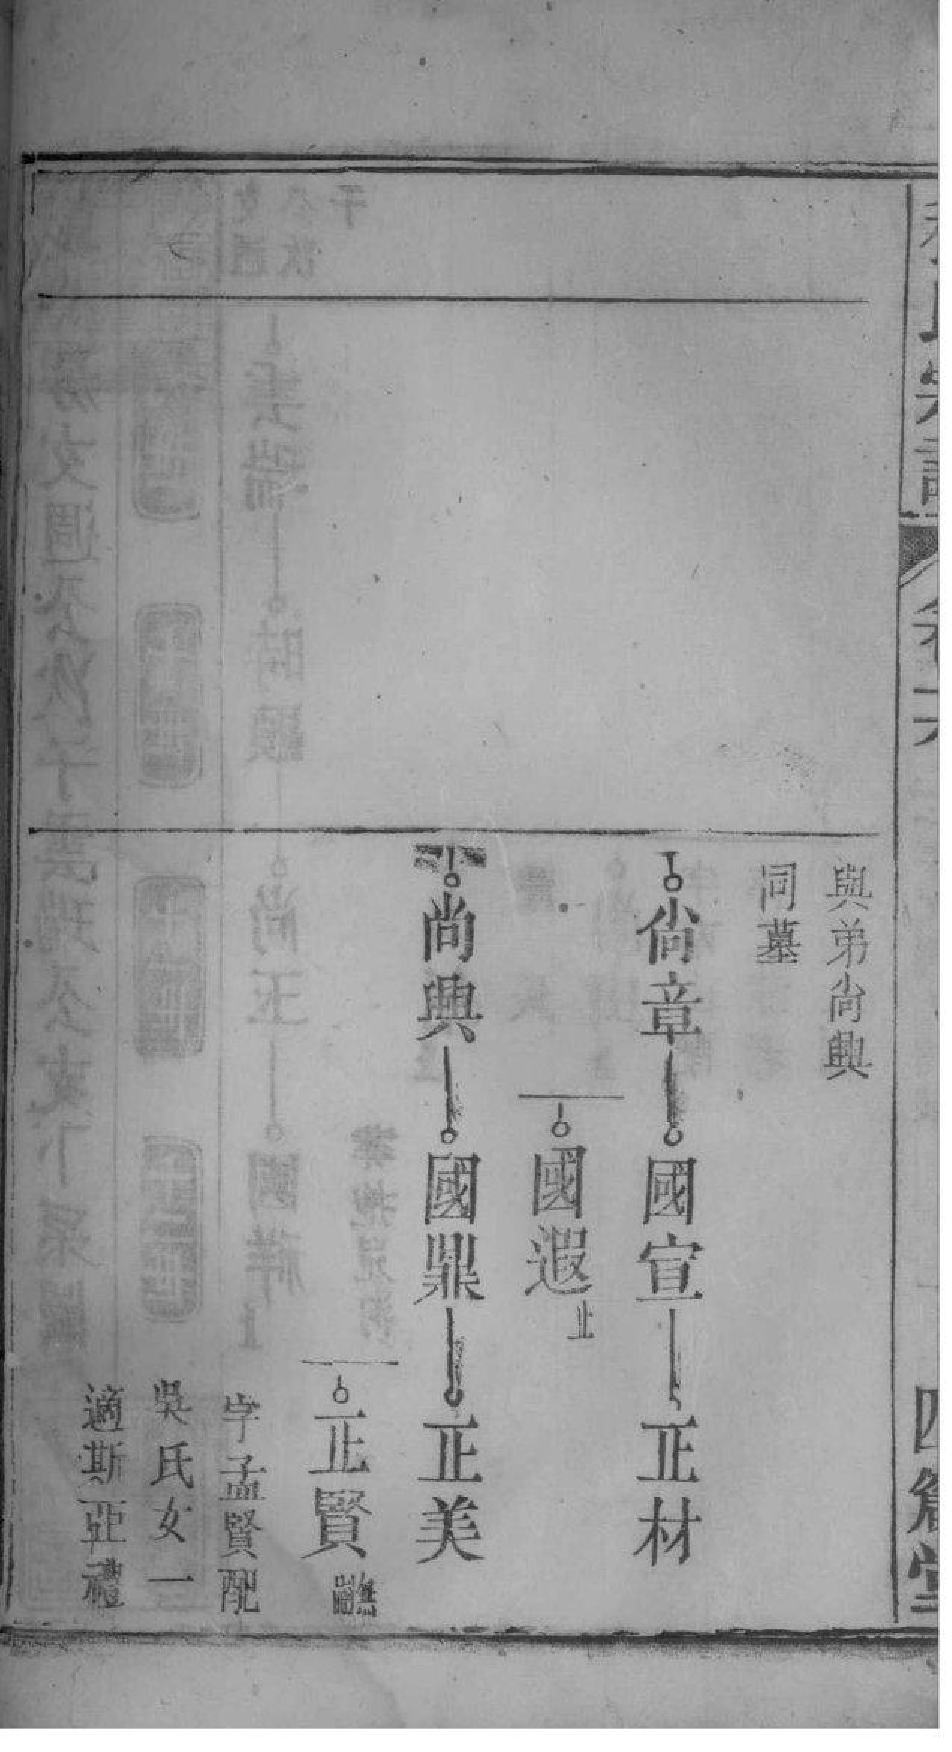 卷六
與弟尙興
同墓
尙章
國宣
正材
國遐
止
尚興
國鼎
正美
正賢
字孟賢配
吳氏女一
適斯亞禮